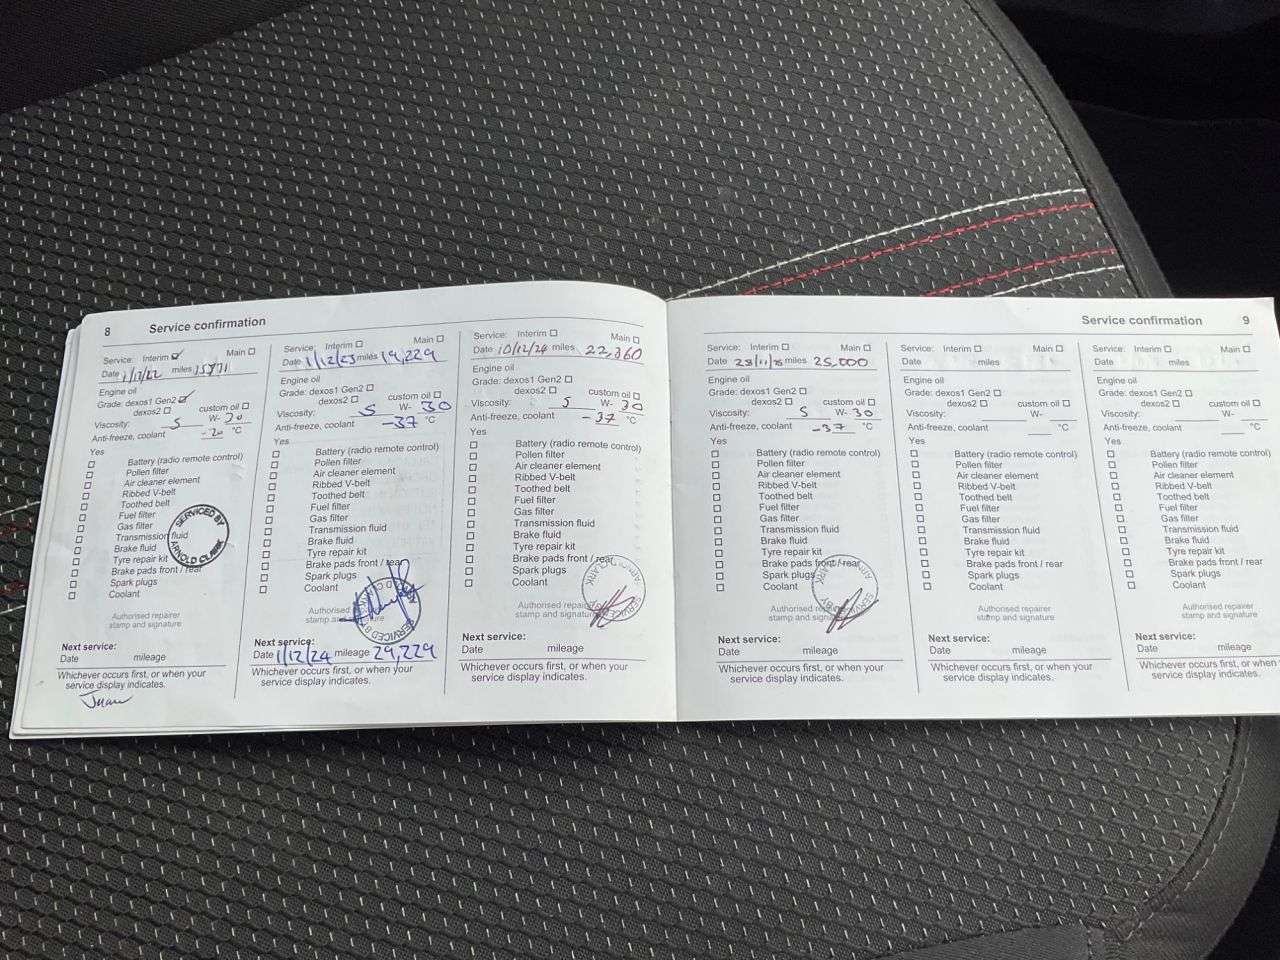 8 Service confirmation
Service: Interim Main
Date 1/12/22 miles
Engine oil
Grade: dexos1 Gen2
dexos2 custom oil
Viscosity: 5 W- 30
Anti-freeze, coolant -20 °C
Yes
Battery (radio remote control)
Pollen filter
Air cleaner element
Ribbed V-belt
Toothed belt
Fuel filter
Gas filter
Transmission fluid
Brake fluid
Tyre repair kit
Brake pads front / rear
Spark plugs
Coolant
SERVICED BY
ARNOLD CLARK
Authorised repairer
stamp and signature
Next service:
Date mileage
Whichever occurs first, or when your
service display indicates.
Service: Interim Main
Date 1/12/23 miles 19,229
Engine oil
Grade: dexos1 Gen2
dexos2 custom oil
Viscosity: 5 W- 30
Anti-freeze, coolant -37 °C
Yes
Battery (radio remote control)
Pollen filter
Air cleaner element
Ribbed V-belt
Toothed belt
Fuel filter
Gas filter
Transmission fluid
Brake fluid
Tyre repair kit
Brake pads front / rear
Spark plugs
Coolant
Authorised
stamp and signature
SERVICED B
Next service:
Date 1/12/24 mileage 29,229
Whichever occurs first, or when your
service display indicates.
Service: Interim Main
Date 10/12/24 miles 22,360
Engine oil
Grade: dexos1 Gen2
dexos2 custom oil
Viscosity: 5 W- 30
Anti-freeze, coolant -37 °C
Yes
Battery (radio remote control)
Pollen filter
Air cleaner element
Ribbed V-belt
Toothed belt
Fuel filter
Gas filter
Transmission fluid
Brake fluid
Tyre repair kit
Brake pads front / rear
Spark plugs
Coolant
Authorised repairer
stamp and signature
Next service:
Date mileage
Whichever occurs first, or when your
service display indicates.
Service confirmation 9
Service: Interim Main
Date 28/11/ miles 25,000
Engine oil
Grade: dexos1 Gen2
dexos2 custom oil
Viscosity: 5 W- 30
Anti-freeze, coolant -37 °C
Yes
Battery (radio remote control)
Pollen filter
Air cleaner element
Ribbed V-belt
Toothed belt
Fuel filter
Gas filter
Transmission fluid
Brake fluid
Tyre repair kit
Brake pads front / rear
Spark plugs
Coolant
Authorised repairer
stamp and signature
Next service:
Date mileage
Whichever occurs first, or when your
service display indicates.
Service: Interim Main
Date miles
Engine oil
Grade: dexos1 Gen2
dexos2 custom oil
Viscosity: W-
Anti-freeze, coolant °C
Yes
Battery (radio remote control)
Pollen filter
Air cleaner element
Ribbed V-belt
Toothed belt
Fuel filter
Gas filter
Transmission fluid
Brake fluid
Tyre repair kit
Brake pads front / rear
Spark plugs
Coolant
Authorised repairer
stamp and signature
Next service:
Date mileage
Whichever occurs first, or when your
service display indicates.
Service: Interim Main
Date miles
Engine oil
Grade: dexos1 Gen2
dexos2 custom oil
Viscosity: W-
Anti-freeze, coolant °C
Yes
Battery (radio remote control)
Pollen filter
Air cleaner element
Ribbed V-belt
Toothed belt
Fuel filter
Gas filter
Transmission fluid
Brake fluid
Tyre repair kit
Brake pads front / rear
Spark plugs
Coolant
Authorised repairer
stamp and signature
Next service:
Date mileage
Whichever occurs first, or when
service display indicates.